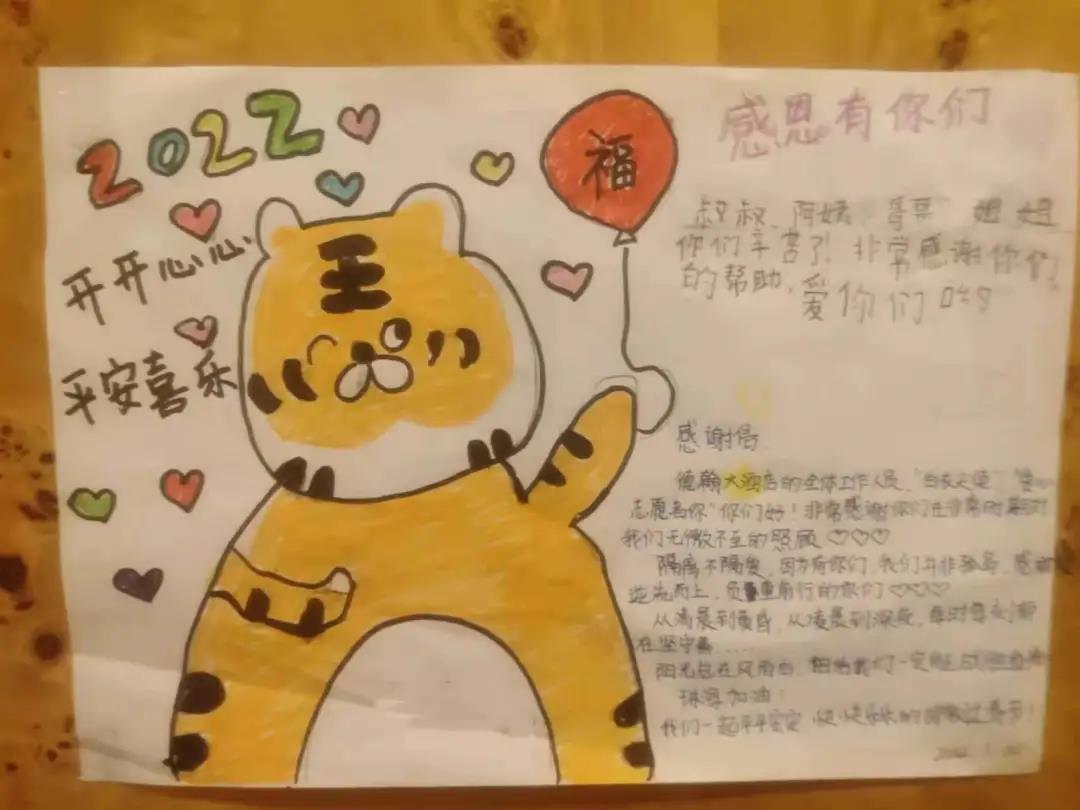 2022
开开心心
平安喜乐
王
福
感恩有你们
叔叔、阿姨 哥哥 姐姐
你们辛苦了!非常感谢你们
的帮助,爱你们
感谢信
德翰大酒店的全体工作人员,“白衣天使”
志愿者你“你们好!非常感谢你们在非常时期对
我们无微不至的照顾♡♡♡
隔离不隔爱,因为有你们,我们并非孤岛,感
逆光而上,负重前行的你们♡♡♡
从清晨到黄昏,从凌晨到深夜,每时每刻都
在坚守着......
阳光总在风雨后,相信我们一定
珠海加油!
我们一起平平安安 快快乐乐的 过春节!